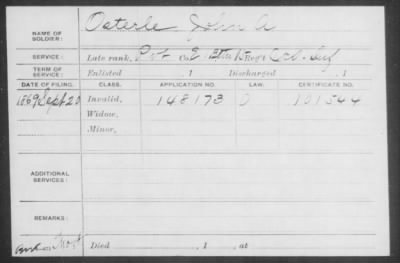 NAME OF SOLDIER: Osterle, John A
SERVICE: Late rank, Pvt Co. E Reg't Inf
TERM OF SERVICE: Enlisted , 1 Discharged , 1
DATE OF FILING. CLASS. APPLICATION NO. LAW. CERTIFICATE NO.
1869 Sept 20 Invalid, 148173 101544
Widow,
Minor,
ADDITIONAL SERVICES:
REMARKS:
Died , 1 , at